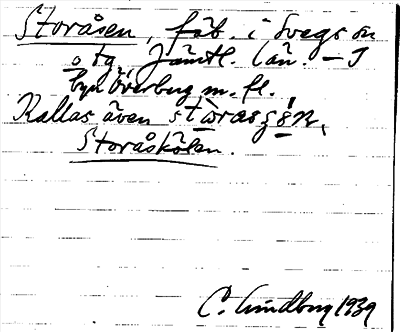 Storåsen, fäb. i Svegs sn
o tg. Jämtl. län. – I
byn Överberg m. fl.
Kallas även
Storåskölen.
C. Lindberg 1939